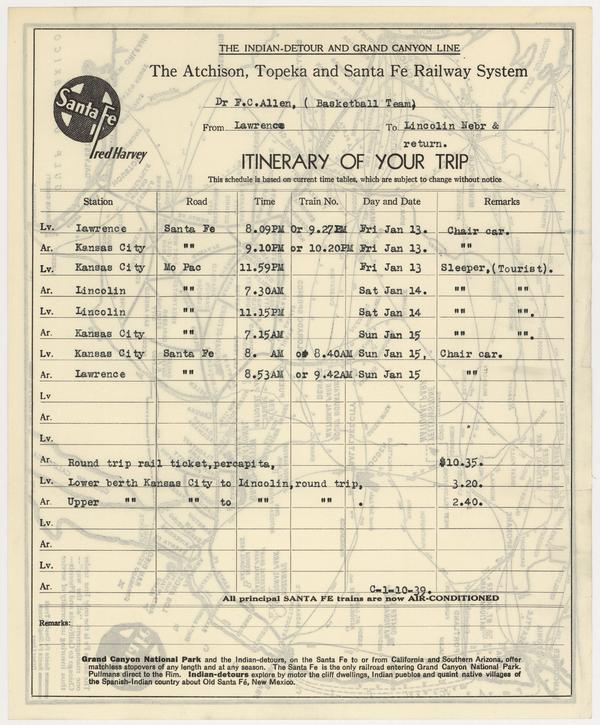 THE INDIAN-DETOUR AND GRAND CANYON LINE
The Atchison, Topeka and Santa Fe Railway System
Santa Fe
Fred Harvey
Dr F.C.Allen, ( Basketball Team)
From Lawrence To Lincoln Nebr &
return.
ITINERARY OF YOUR TRIP
This schedule is based on current time tables, which are subject to change without notice
Station Road Time Train No. Day and Date Remarks
Lv. Lawrence Santa Fe 8.09PM Or 9.27PM Fri Jan 13. Chair car.
Ar. Kansas City "" 9.10PM or 10.20PM Fri Jan 13. ""
Lv. Kansas City Mo Pac 11.59PM Fri Jan 13 Sleeper,(Tourist).
Ar. Lincoln "" 7.30AM Sat Jan 14. "" ""
Lv. Lincoln "" 11.15PM Sat Jan 14 "" "".
Ar. Kansas City "" 7.15AM Sun Jan 15 "" "".
Lv. Kansas City Santa Fe 8. AM or 8.40AM Sun Jan 15, Chair car.
Ar. Lawrence "" 8.53AM or 9.42AM Sun Jan 15 ""
Lv
Ar.
Lv.
Ar. Round trip rail ticket,percapita, $10.35.
Lv. Lower berth Kansas City to Lincoln,round trip, 3.20.
Ar. Upper "" "" to "" "" . 2.40.
Lv.
Ar.
Lv.
Ar. C-1-10-39.
All principal SANTA FE trains are now AIR-CONDITIONED
Remarks:
Grand Canyon National Park and the Indian-detours, on the Santa Fe to or from California and Southern Arizona, offer
matchless stopovers of any length and at any season. The Santa Fe is the only railroad entering Grand Canyon National Park.
Pullmans direct to the Rim. Indian-detours explore by motor the cliff dwellings, Indian pueblos and quaint native villages of
the Spanish-Indian country about Old Santa Fé, New Mexico.